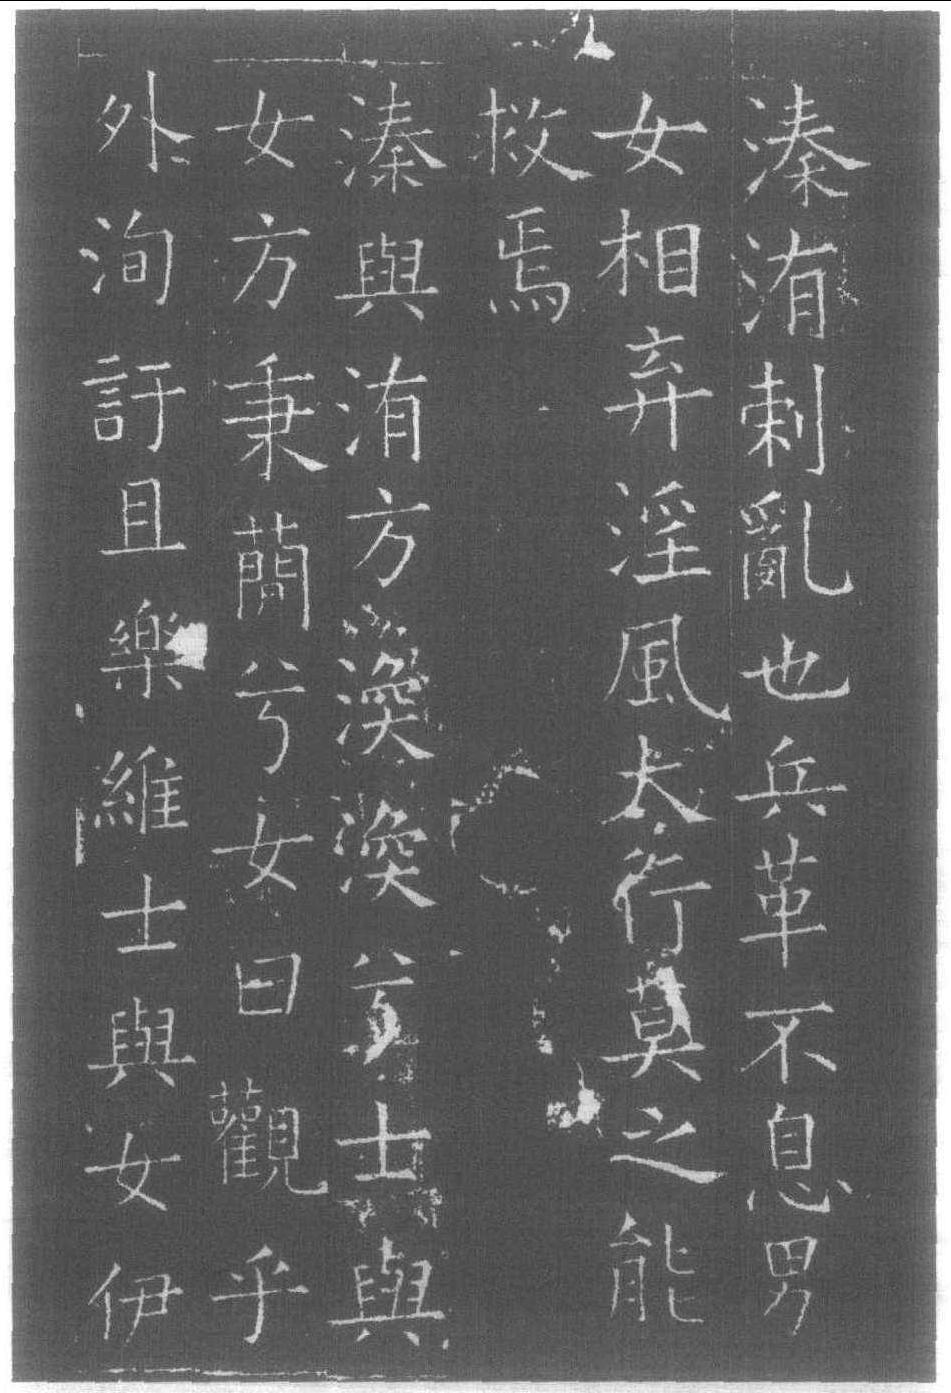 溱洧刺亂也兵革不息男
女相弃淫風大行莫之能
救焉
溱與洧方渙渙兮士與
女方秉蕳兮女曰觀乎
外洵訏且樂維士與女伊